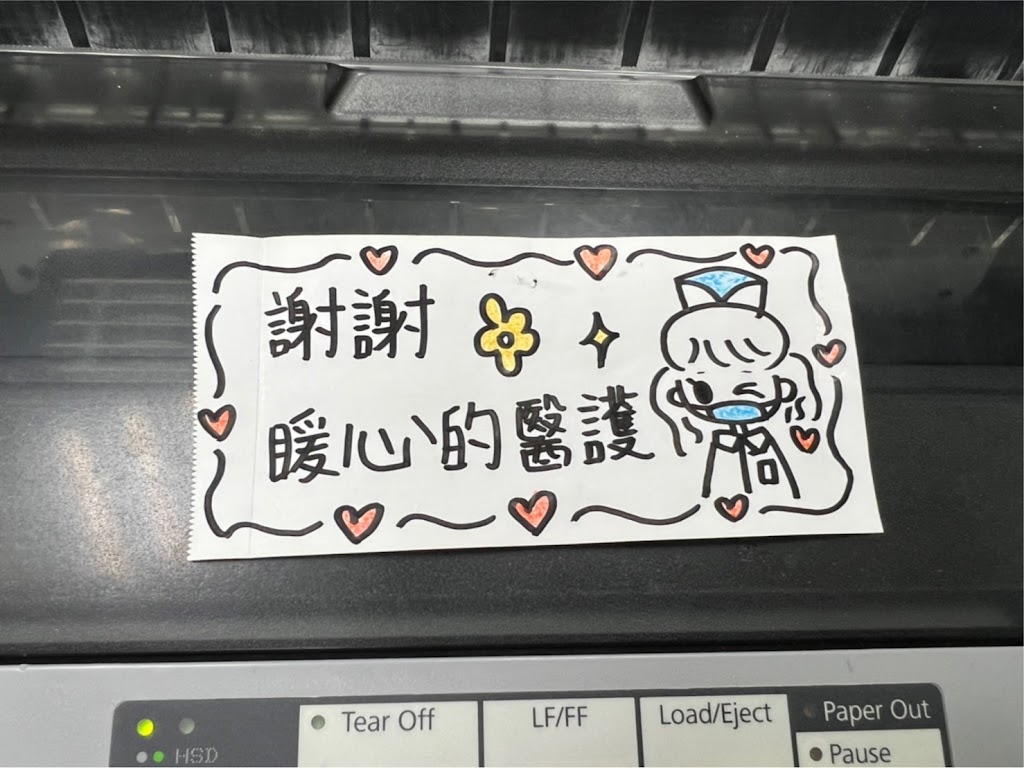 謝謝
暖心的醫護
Tear Off
LF/FF
Load/Eject
Paper Out
Pause
HSD